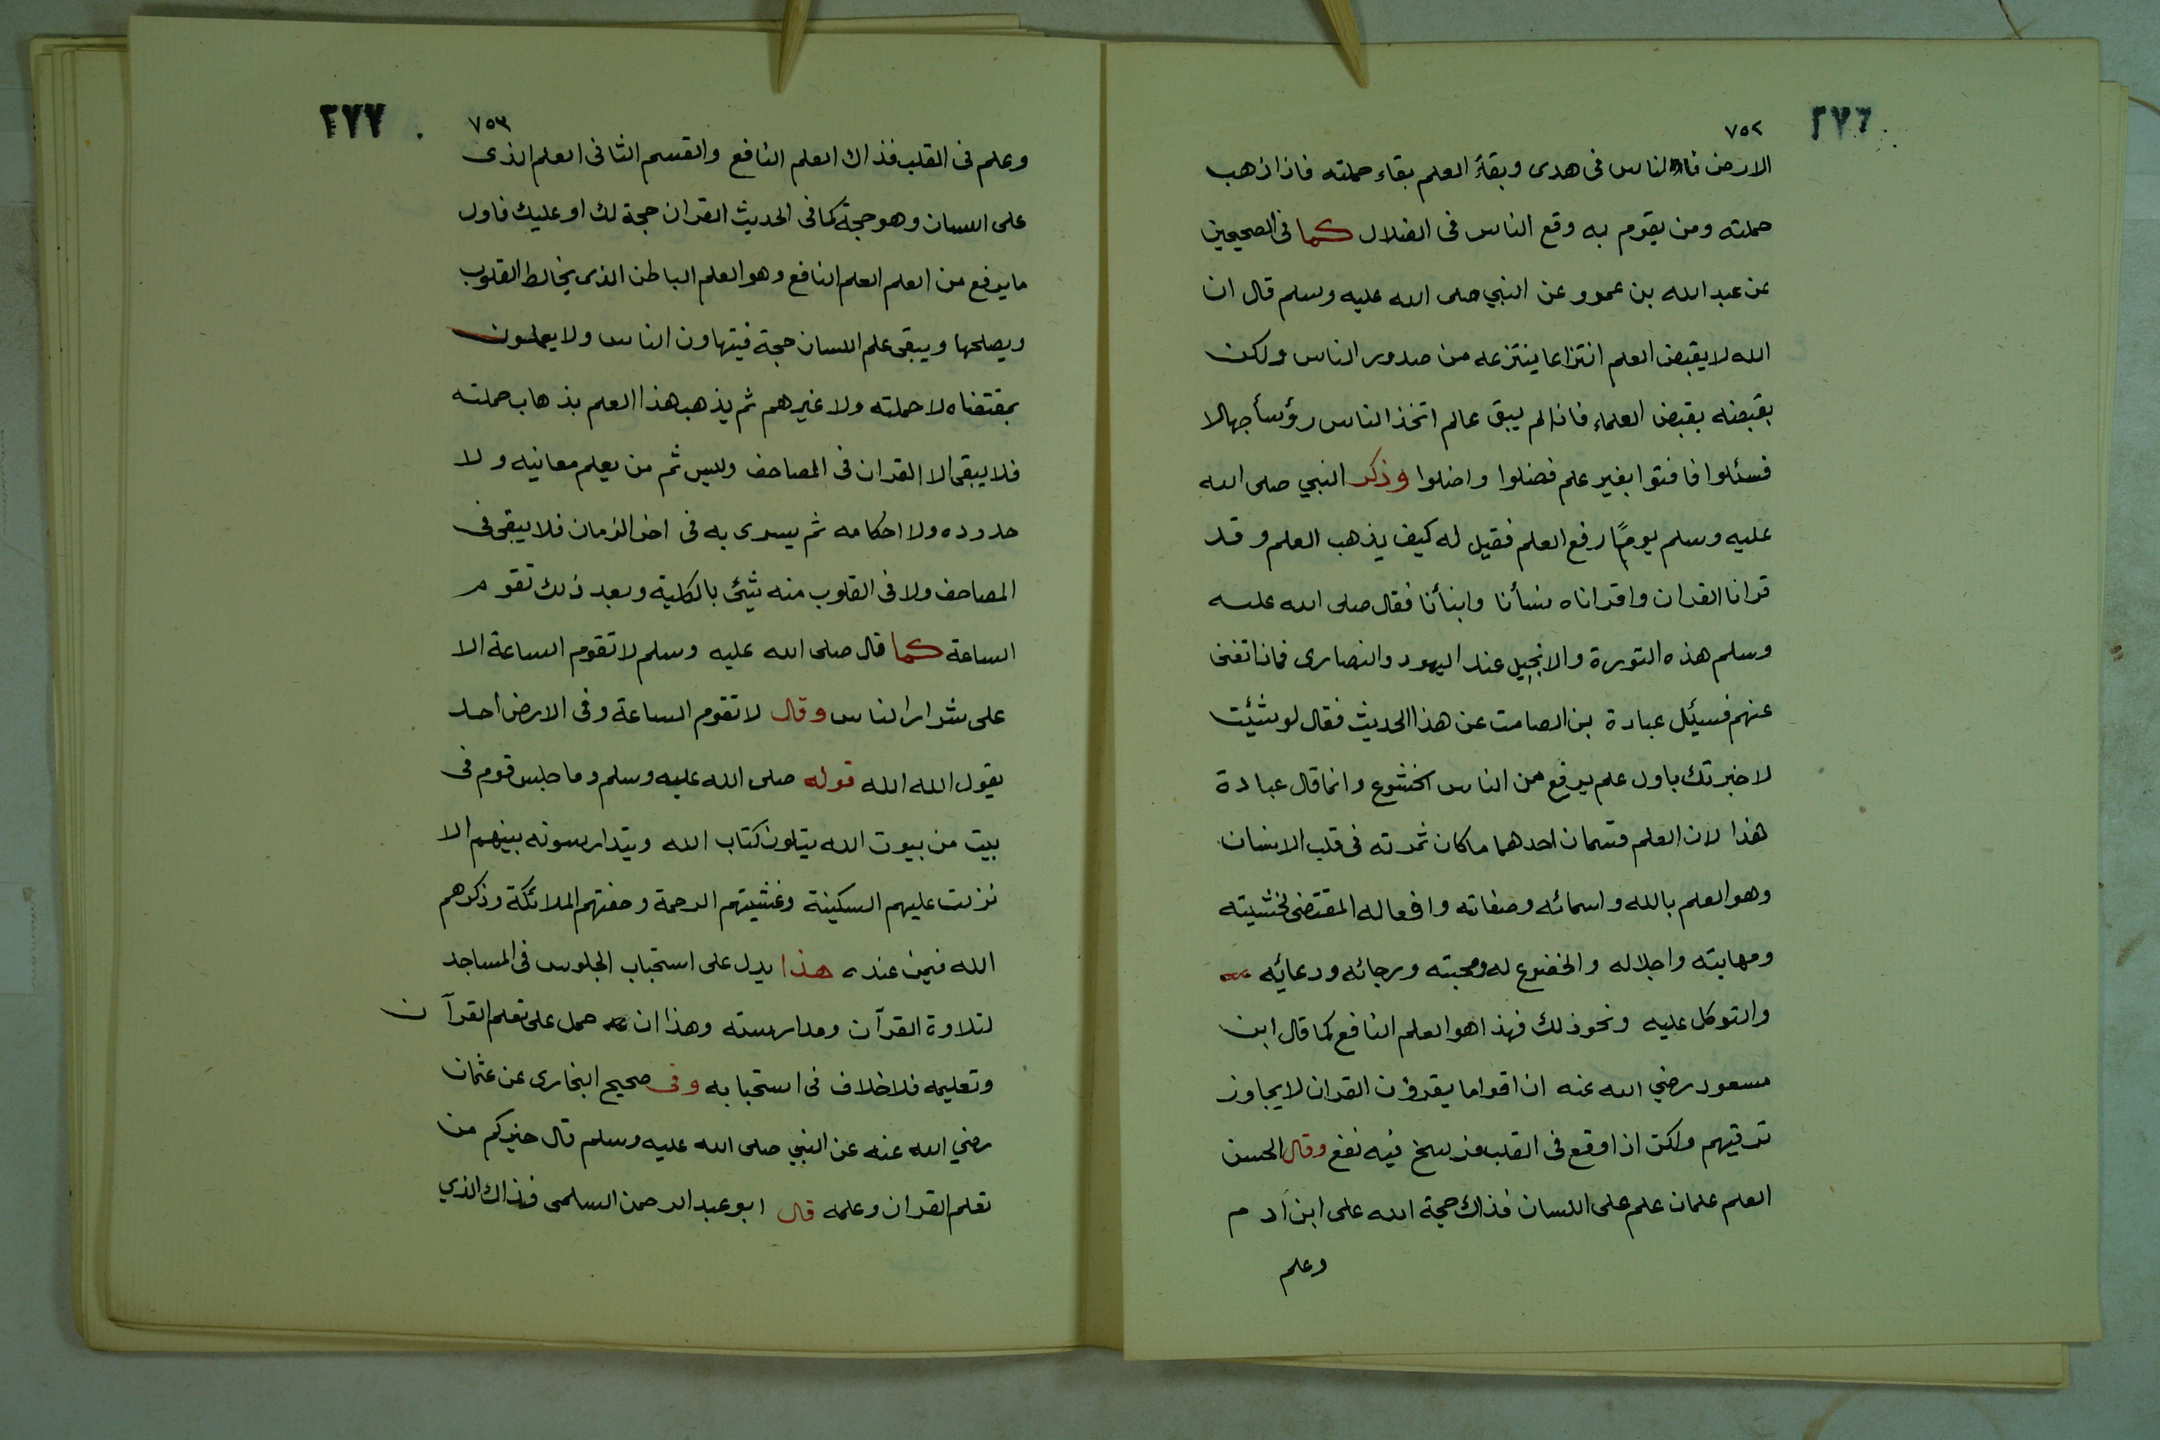 ٢٧٦
٧٥٢
الارض فالناس فى هدى وبقاء العلم بقاء حملته فاذا ذهب
حملته ومن يقوم به وقع الناس فى الضلال كما فى الصحيحين
عن عبد الله بن عمرو عن النبي صلى الله عليه وسلم قال ان
الله لا يقبض العلم انتزاعا ينتزعه من صدور الناس ولكن
يقبضه بقبض العلماء فاذا لم يبق عالم اتخذ الناس رؤسأ جهالا
فسئلوا فافتوا بغير علم فضلوا واضلوا وذكر النبي صلى الله
عليه وسلم يومًا رفع العلم فقيل له كيف يذهب العلم وقد
قرانا القران واقراناه نسأنا وابنأنا فقال صلى الله عليه
وسلم هذه التورية والانجيل عند اليهود والنصارى فماذا تغنى
عنهم فسيئل عبادة بن الصامت عن هذا الحديث فقال لو شئت
لاخبرتك باول علم يرفع من الناس الخشوع وانما قال عبادة
هذا لان العلم قسمان احدهما ما كان ثمرته فى قلب الانسان
وهو العلم بالله واسمائه وصفاته وافعاله المقتضى لخشيته
ومهابته واجلاله والخضوع له ومحبته ورجائه ودعائه
والتوكل عليه ونحو ذلك فهذا هو العلم النافع كما قال ابن
مسعود رضي الله عنه ان اقواما يقرؤن القران لا يجاوز
تراقيهم ولكن اذا وقع فى القلب فرسخ فيه نفع وقال الحسن
العلم علمان علم على اللسان فذاك حجة الله على ابن آدم
وعلم
٢٧٧
٧٥٣
وعلم فى القلب فذاك العلم النافع والقسم الثانى العلم الذى
على اللسان وهو حجة كما فى الحديث القران حجة لك او عليك فاول
ما يرفع من العلم العلم النافع وهو العلم الباطن الذى يخالط القلوب
ويصلحها ويبقى علم اللسان حجة فيتهاون الناس ولا يعملون
بمقتضاه لا حملته ولا غيرهم ثم يذهب هذا العلم بذهاب حملته
فلا يبقى الا القران فى المصاحف وليس ثم من يعلم معانيه ولا
حدوده ولا احكامه ثم يسرى به فى اخر الزمان فلا يبقى فى
المصاحف ولا فى القلوب منه شيئ بالكلية وبعد ذلك تقوم
الساعة كما قال صلى الله عليه وسلم لا تقوم الساعة الا
على شرار الناس وقال لا تقوم الساعة وفى الارض احد
يقول الله الله قوله صلى الله عليه وسلم وما جلس قوم فى
بيت من بيوت الله يتلون كتاب الله ويتدارسونه بينهم الا
نزلت عليهم السكينة وغشيتهم الرحمة وحفتهم الملائكة وذكرهم
الله فيمن عنده هذا يدل على استحباب الجلوس فى المساجد
لتلاوة القرآن ومدارسته وهذا ان حمل على تعلم القرآن
وتعليمه فلا خلاف فى استحبابه وفى صحيح البخارى عن عثمان
رضي الله عنه عن النبي صلى الله عليه وسلم قال خيركم من
تعلم القران وعلمه قال ابو عبد الرحمن السلمى فذاك الذي